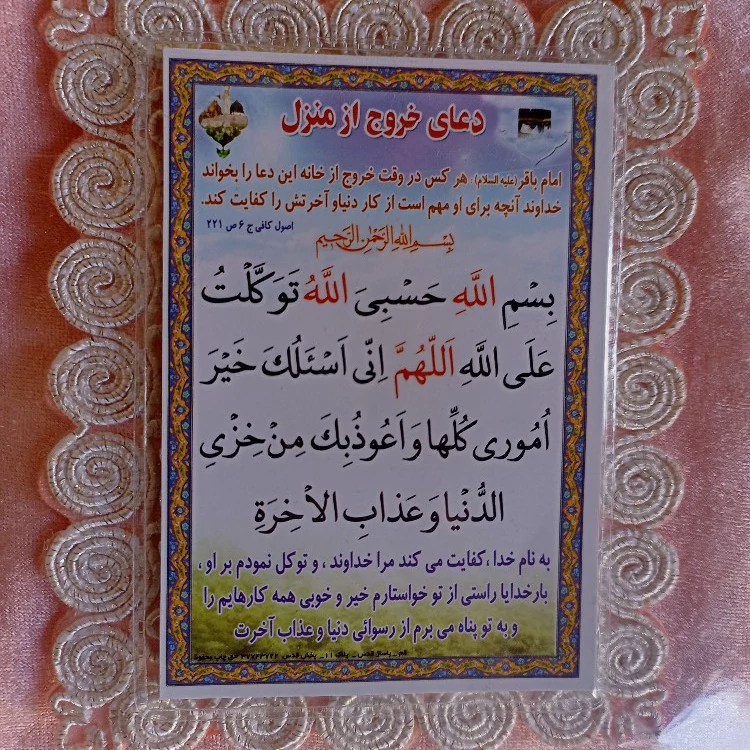 دعای خروج از منزل
امام باقر (علیه السلام) : هر کس در وقت خروج از خانه این دعا را بخواند
خداوند آنچه برای او مهم است از کار دنیاو آخرتش را کفایت کند.
اصول کافی ج ۶ ص ۲۲۱
بِسْمِ اللهِ الرَّحْمٰنِ الرَّحیمِ
بِسْمِ اللَّهِ حَسْبِیَ اللَّهُ تَوَکَّلْتُ
عَلَی اللَّهِ اَللّهُمَّ اِنّی اَسْئَلُكَ خَیْرَ
اُمُوری کُلِّها وَ اَعُوذُ بِكَ مِنْ خِزْیِ
الدُّنْیا وَ عَذابِ الْاخِرَةِ
به نام خدا ، کفایت می کند مرا خداوند ، و توکل نمودم بر او ،
بارخدایا راستی از تو خواستارم خیر و خوبی همه کارهایم را
و به تو پناه می برم از رسوائی دنیا و عذاب آخرت
قم _ پاساژ قدس _ پلاک ۱۱ _ پخش قدس